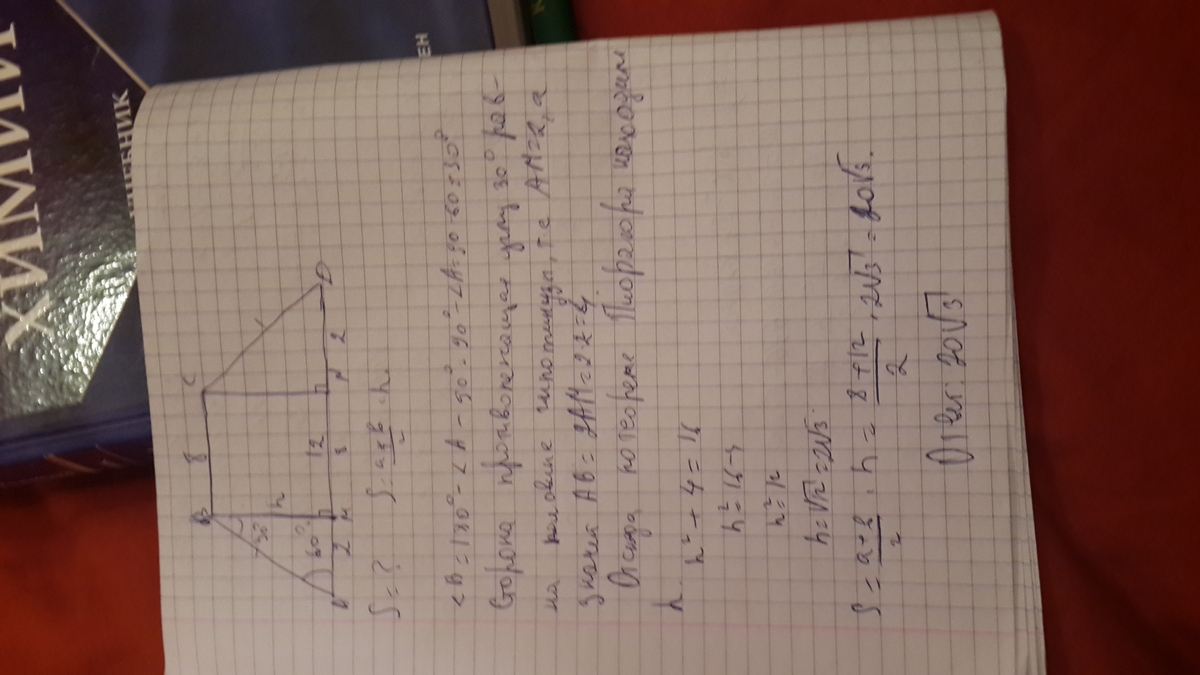 ХИМИИ
B 8 C
30° h
60° 12
A 2 M 8 N 2 D
S=? S=a+b/2·h.
<B=180°-<A-90°=90°-<A=90-60=30°
Сторона противолежащая углу 30° рав-
на половине гипотинузы, т.е AM=2, а
значит AB=2AM=2·2=4
Отсюда по теореме Пифагора находим
h.
h²+4=16
h²=16-4
h²=12
h=√12=2√3.
S=a+b/2·h=8+12/2·2√3=20√3.
Ответ: 20√3